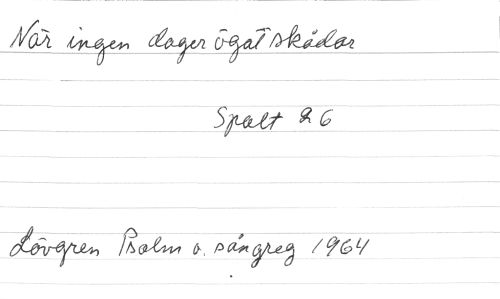 När ingen dager ögat skådar
Spalt 26
Lövgren Psalm o. sångreg 1964